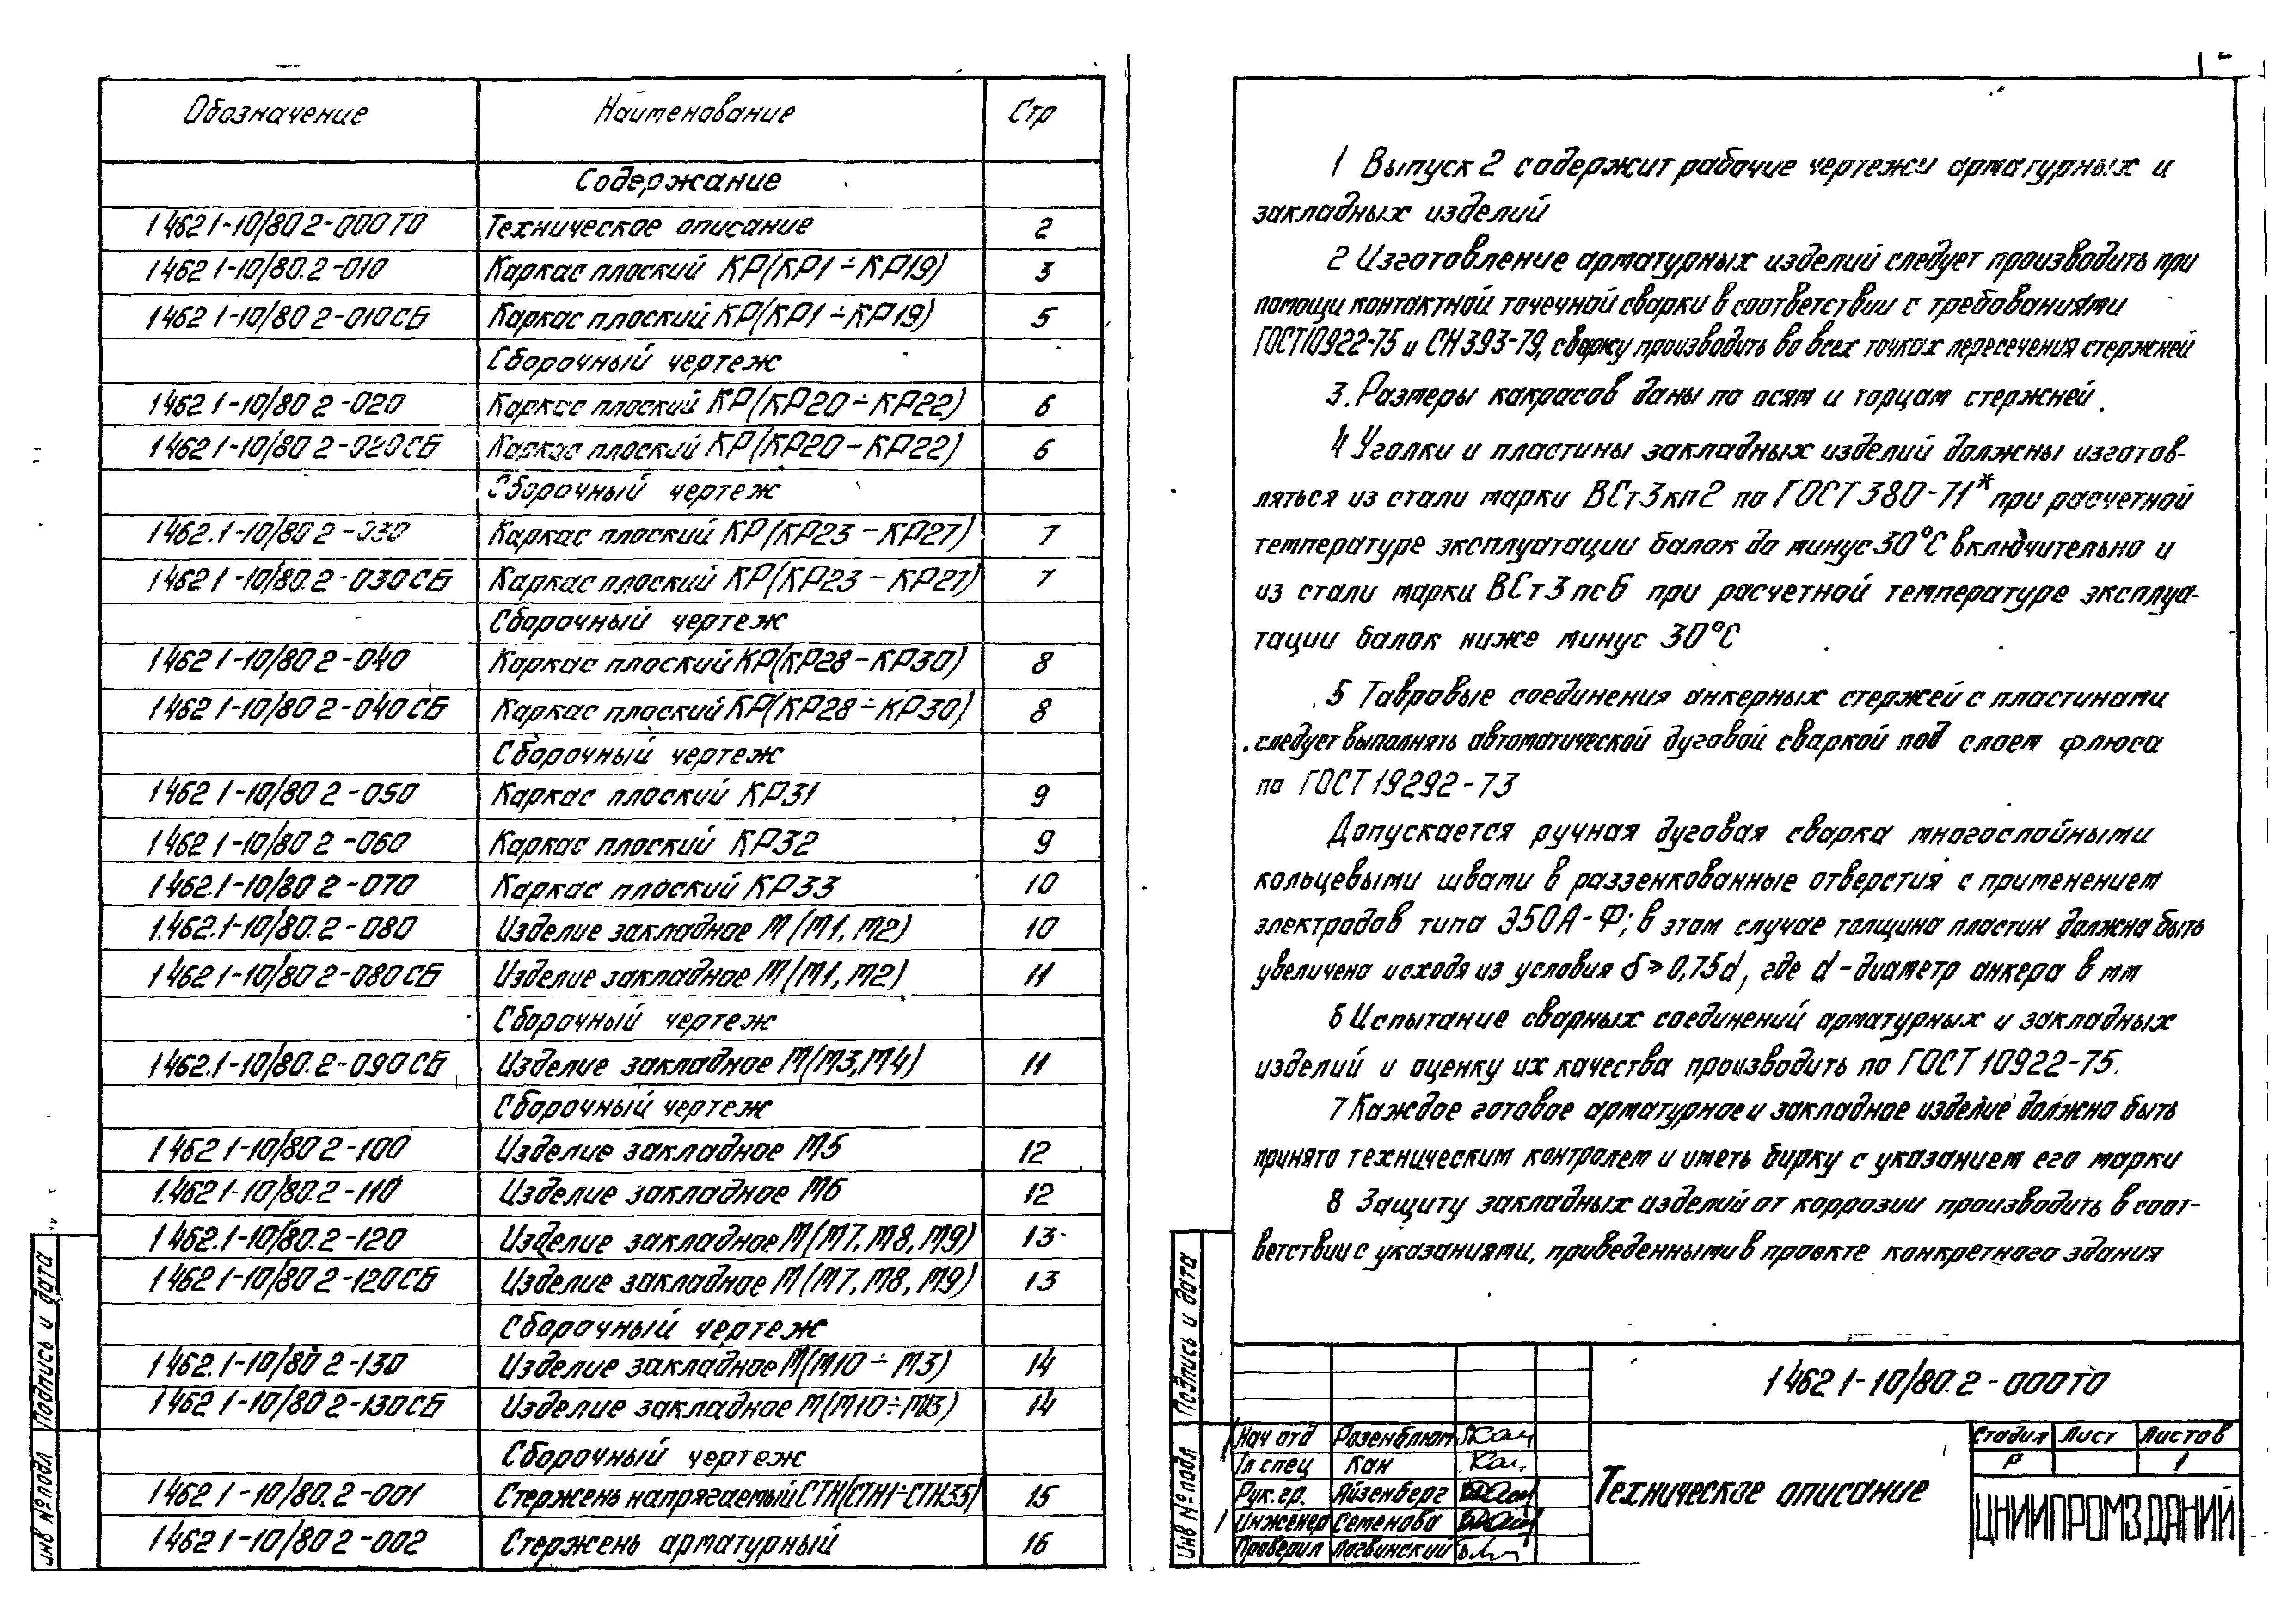 Обозначение Наименование Стр
Содержание
1 462 1-10/80 2-000ТО Техническое описание 2
1 462 1-10/80.2-010 Каркас плоский КР(КР1÷КР19) 3
1 462 1-10/80 2-010СБ Каркас плоский КР(КР1÷КР19) 5
Сборочный чертеж
1 462 1-10/80 2-020 Каркас плоский КР(КР20÷КР22) 6
1 462 1-10/80 2-020СБ Каркас плоский КР(КР20-КР22) 6
Сборочный чертеж
1 462.1-10/80 2-030 Каркас плоский КР(КР23-КР27) 7
1 462 1-10/80.2-030СБ Каркас плоский КР(КР23-КР27) 7
Сборочный чертеж
1 462 1-10/80 2-040 Каркас плоский КР(КР28-КР30) 8
1 462 1-10/80 2-040СБ Каркас плоский КР(КР28÷КР30) 8
Сборочный чертеж
1 462 1-10/80 2-050 Каркас плоский КР31 9
1 462 1-10/80 2-060 Каркас плоский КР32 9
1 462.1-10/80 2-070 Каркас плоский КР33 10
1.462.1-10/80.2-080 Изделие закладное М(М1, М2) 10
1 462 1-10/80 2-080СБ Изделие закладное М(М1, М2) 11
Сборочный чертеж
1 462.1-10/80.2-090СБ Изделие закладное М(М3,М4) 11
Сборочный чертеж
1 462 1-10/80 2-100 Изделие закладное М5 12
1.462 1-10/80.2-110 Изделие закладное М6 12
1 462.1-10/80.2-120 Изделие закладное М(М7, М8, М9) 13
1 462 1-10/80 2-120СБ Изделие закладное М(М7, М8, М9) 13
Сборочный чертеж
1 462.1-10/80 2-130 Изделие закладное М(М10÷М3) 14
1 462 1-10/80 2-130СБ Изделие закладное М(М10÷М13) 14
Сборочный чертеж
1 462 1-10/80.2-001 Стержень напрягаемый СТН(СТН1÷СТН35) 15
1 462 1-10/80 2-002 Стержень арматурный 16
Подпись и дата
инв № подл
1 Выпуск 2 содержит рабочие чертежи арматурных и
закладных изделий
2 Изготовление арматурных изделий следует производить при
помощи контактной точечной сварки в соответствии с требованиями
ГОСТ 10922-75 и СН 393-79, сварку производить во всех точках пересечения стержней
3. Размеры какрасов даны по осям и торцам стержней.
4 Уголки и пластины закладных изделий должны изготов-
ляться из стали марки ВСт3кп2 по ГОСТ 380-71* при расчетной
температуре эксплуатации балок до минус 30°С включительно и
из стали марки ВСт3пс6 при расчетной температуре эксплуа-
тации балок ниже минус 30°С
5 Тавровые соединения анкерных стержей с пластинами
следует выполнять автоматической дуговой сваркой под слоем флюса
по ГОСТ 19292-73
Допускается ручная дуговая сварка многослойными
кольцевыми швами в раззенкованные отверстия с применением
электродов типа Э50А-Ф; в этом случае толщина пластин должна быть
увеличена исходя из условия δ ≥ 0,75d, где d-диаметр анкера в мм
6 Испытание сварных соединений арматурных и закладных
изделий и оценку их качества производить по ГОСТ 10922-75.
7 Каждое готовое арматурное и закладное изделие должно быть
принято техническим контролем и иметь бирку с указанием его марки
8 Защиту закладных изделий от коррозии производить в соот-
ветствии с указаниями, приведенными в проекте конкретного здания
Подпись и дата
инв № подл
1 462 1-10/80.2-000ТО
Нач отд Розенблюм
Гл спец Кан
Рук.гр. Айзенберг
Инженер Семенова
Проверил Логвинский
Техническое описание
Стадия Лист Листов
Р 1
ЦНИИПРОМЗДАНИЙ